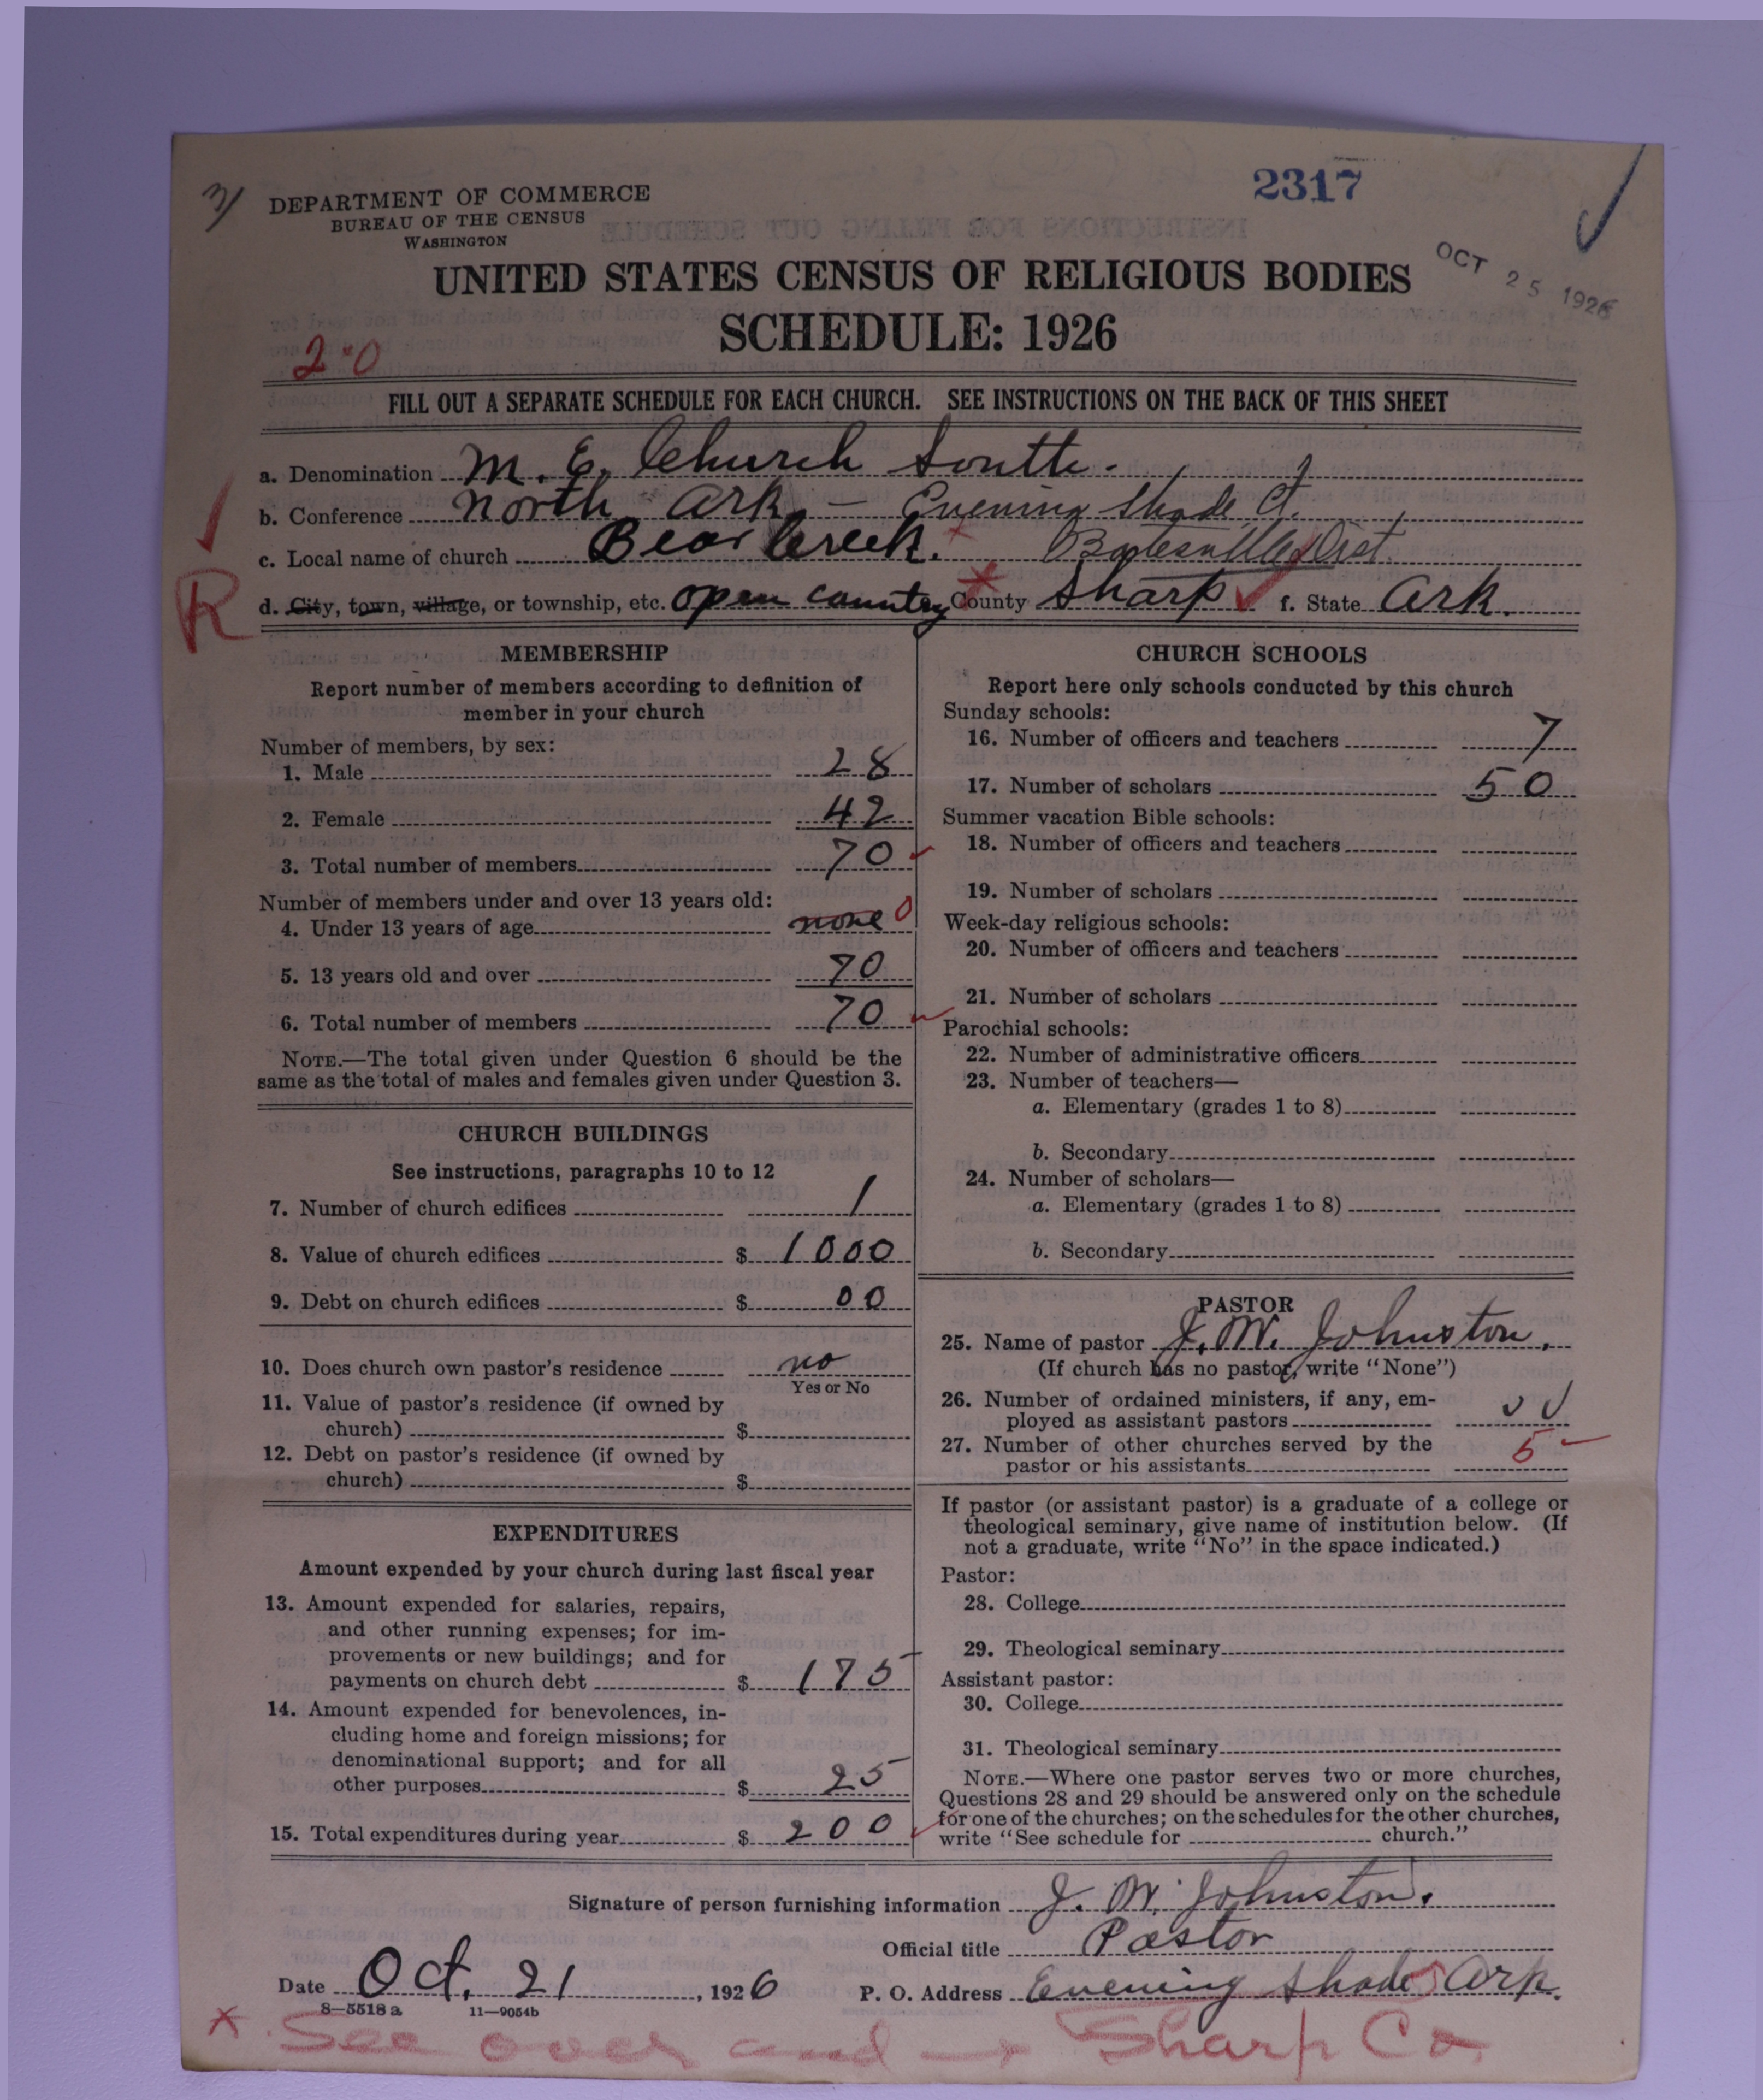 3/
DEPARTMENT OF COMMERCE
BUREAU OF THE CENSUS
WASHINGTON
2317
OCT 25 1926
UNITED STATES CENSUS OF RELIGIOUS BODIES
SCHEDULE: 1926
2-0
FILL OUT A SEPARATE SCHEDULE FOR EACH CHURCH. SEE INSTRUCTIONS ON THE BACK OF THIS SHEET
a. Denomination M. E. Church South.
b. Conference North Ark. — Evening Shade Ct.
c. Local name of church Bear Creek. Batesville Dist.
R
d. City, town, village, or township, etc. open country County Sharp f. State Ark.
MEMBERSHIP
Report number of members according to definition of
member in your church
Number of members, by sex:
1. Male 28
2. Female 42
3. Total number of members 70
Number of members under and over 13 years old:
4. Under 13 years of age none 0
5. 13 years old and over 70
6. Total number of members 70
NOTE.—The total given under Question 6 should be the
same as the total of males and females given under Question 3.
CHURCH BUILDINGS
See instructions, paragraphs 10 to 12
7. Number of church edifices 1
8. Value of church edifices $ 1000
9. Debt on church edifices $ 00
10. Does church own pastor's residence no
Yes or No
11. Value of pastor's residence (if owned by
church) $
12. Debt on pastor's residence (if owned by
church) $
EXPENDITURES
Amount expended by your church during last fiscal year
13. Amount expended for salaries, repairs,
and other running expenses; for im-
provements or new buildings; and for
payments on church debt $ 175
14. Amount expended for benevolences, in-
cluding home and foreign missions; for
denominational support; and for all
other purposes $ 25
15. Total expenditures during year $ 200
CHURCH SCHOOLS
Report here only schools conducted by this church
Sunday schools:
16. Number of officers and teachers 7
17. Number of scholars 50
Summer vacation Bible schools:
18. Number of officers and teachers
19. Number of scholars
Week-day religious schools:
20. Number of officers and teachers
21. Number of scholars
Parochial schools:
22. Number of administrative officers
23. Number of teachers—
a. Elementary (grades 1 to 8)
b. Secondary
24. Number of scholars—
a. Elementary (grades 1 to 8)
b. Secondary
PASTOR
25. Name of pastor J. W. Johnston.
(If church has no pastor, write "None")
26. Number of ordained ministers, if any, em-
ployed as assistant pastors
27. Number of other churches served by the
pastor or his assistants 5
If pastor (or assistant pastor) is a graduate of a college or
theological seminary, give name of institution below. (If
not a graduate, write "No" in the space indicated.)
Pastor:
28. College
29. Theological seminary
Assistant pastor:
30. College
31. Theological seminary
NOTE.—Where one pastor serves two or more churches,
Questions 28 and 29 should be answered only on the schedule
for one of the churches; on the schedules for the other churches,
write "See schedule for church."
Signature of person furnishing information J. W. Johnston.
Official title Pastor
Date Oct. 21, 1926 P. O. Address Evening Shade Ark.
8—5518 a 11—9054b
x See over and → Sharp Co.